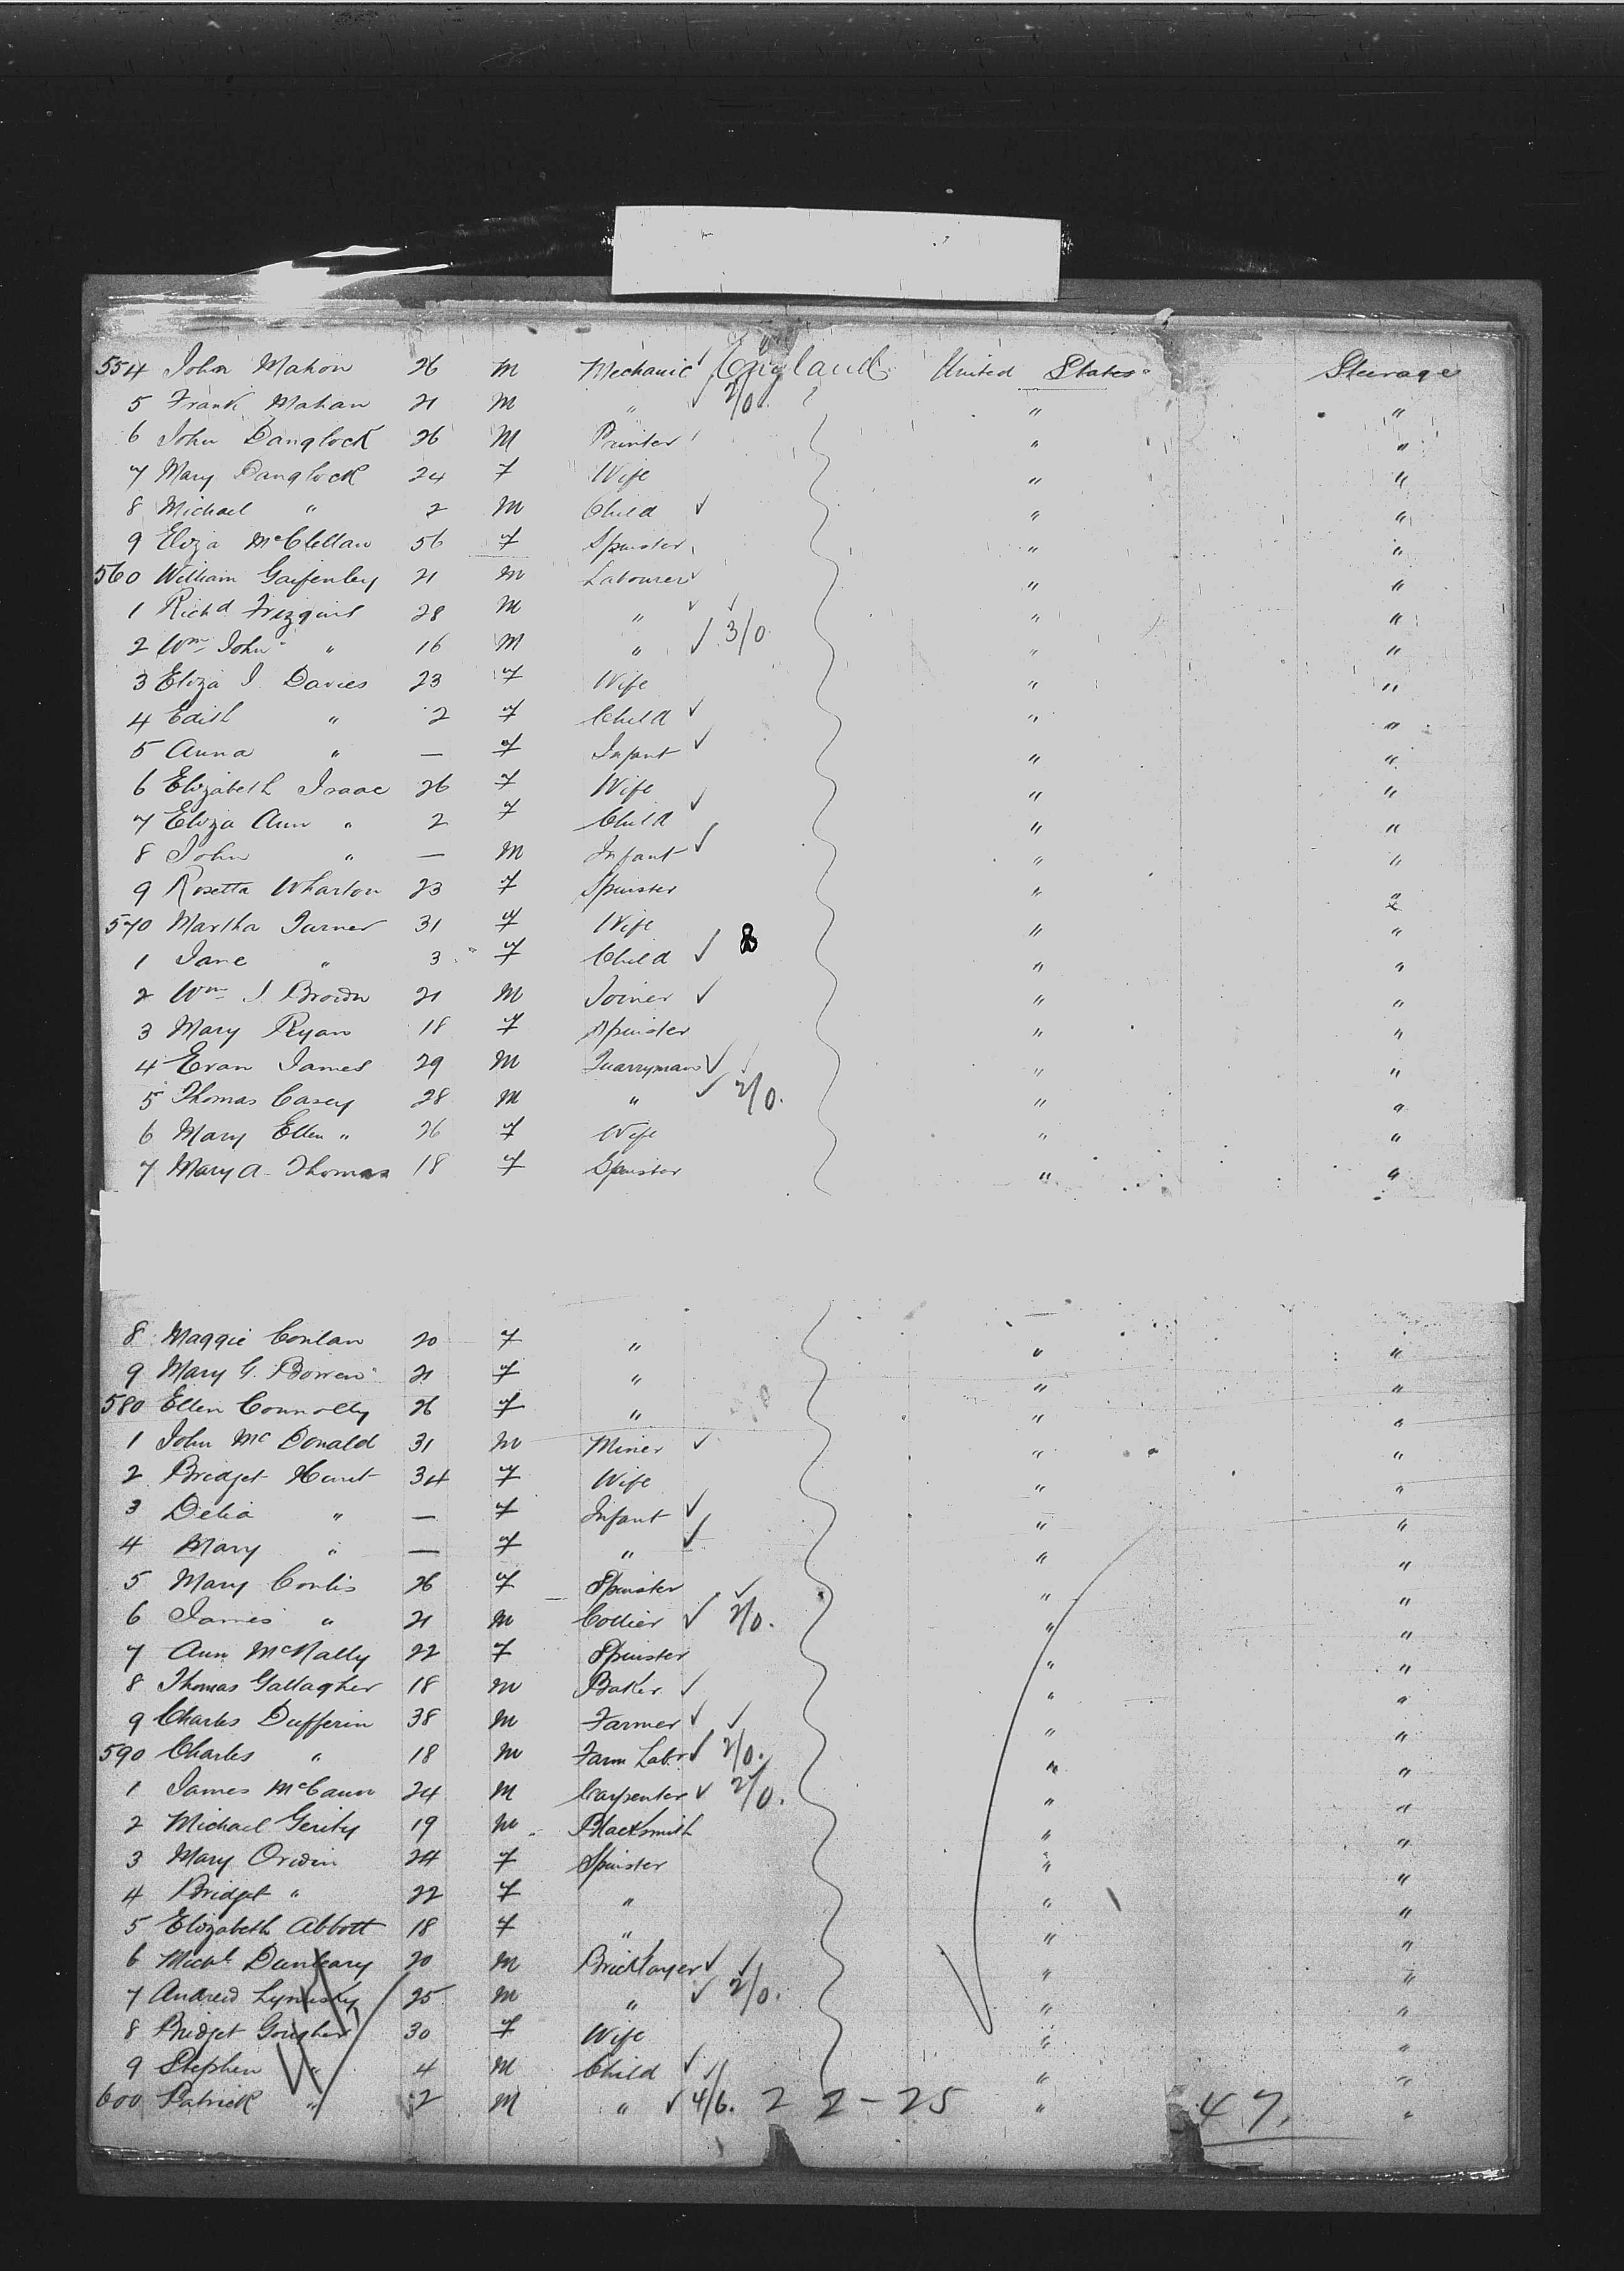 554 John Mahon 26 M Mechanic England United States Steerage
5 Frank Mahan 21 M " 2/0 " "
6 John Danglock 26 M Printer " "
7 Mary Danglock 24 F Wife " "
8 Michael " 2 M Child " "
9 Eliza McClellan 56 F Spinster " "
560 William 21 M Labourer " "
1 Richd 28 M " " "
2 Wm John " 16 M " 3/0 " "
3 Eliza J. Davies 23 F Wife " "
4 Edith " 2 F Child " "
5 Anna " — F Infant " "
6 Elizabeth Isaac 26 F Wife " "
7 Eliza Ann " 2 F Child " "
8 John " — M Infant " "
9 Rosetta Wharton 23 F Spinster " "
570 Martha Turner 31 F Wife " "
1 Jane " 3 F Child 8 " "
2 Wm J. Brown 21 M Joiner " "
3 Mary Ryan 18 F Spinster " "
4 Evan James 29 M Quarryman " "
5 Thomas Casey 28 M " 2/0. " "
6 Mary Ellen " 26 F Wife " "
7 Mary A. Thomas 18 F Spinster " "
8 Maggie Conlan 20 F " " "
9 Mary G. Bowen 21 F " " "
580 Ellen Connolly 26 F " " "
1 John McDonald 31 M Miner " "
2 Bridget Hunt 34 F Wife " "
3 Delia " — F Infant " "
4 Mary " — F " " "
5 Mary Conlis 26 F Spinster " "
6 James " 21 M Collier 2/0. " "
7 Ann McNally 22 F Spinster " "
8 Thomas Gallagher 18 M Baker " "
9 Charles Dufferin 38 M Farmer " "
590 Charles " 18 M Farm Labr 2/0. " "
1 James McCann 24 M Carpenter 2/0. " "
2 Michael Gerity 19 M Blacksmith " "
3 Mary Orwin 24 F Spinster " "
4 Bridget " 22 F " " "
5 Elizabeth Abbott 18 F " " "
6 Michl Dunleary 20 M Bricklayer " "
7 Andrew 25 M " 2/0. " "
8 Bridget 30 F Wife " "
9 Stephen " 4 M Child " "
600 Patrick " 2 M " 4/6. 2 2-25 " 47. "